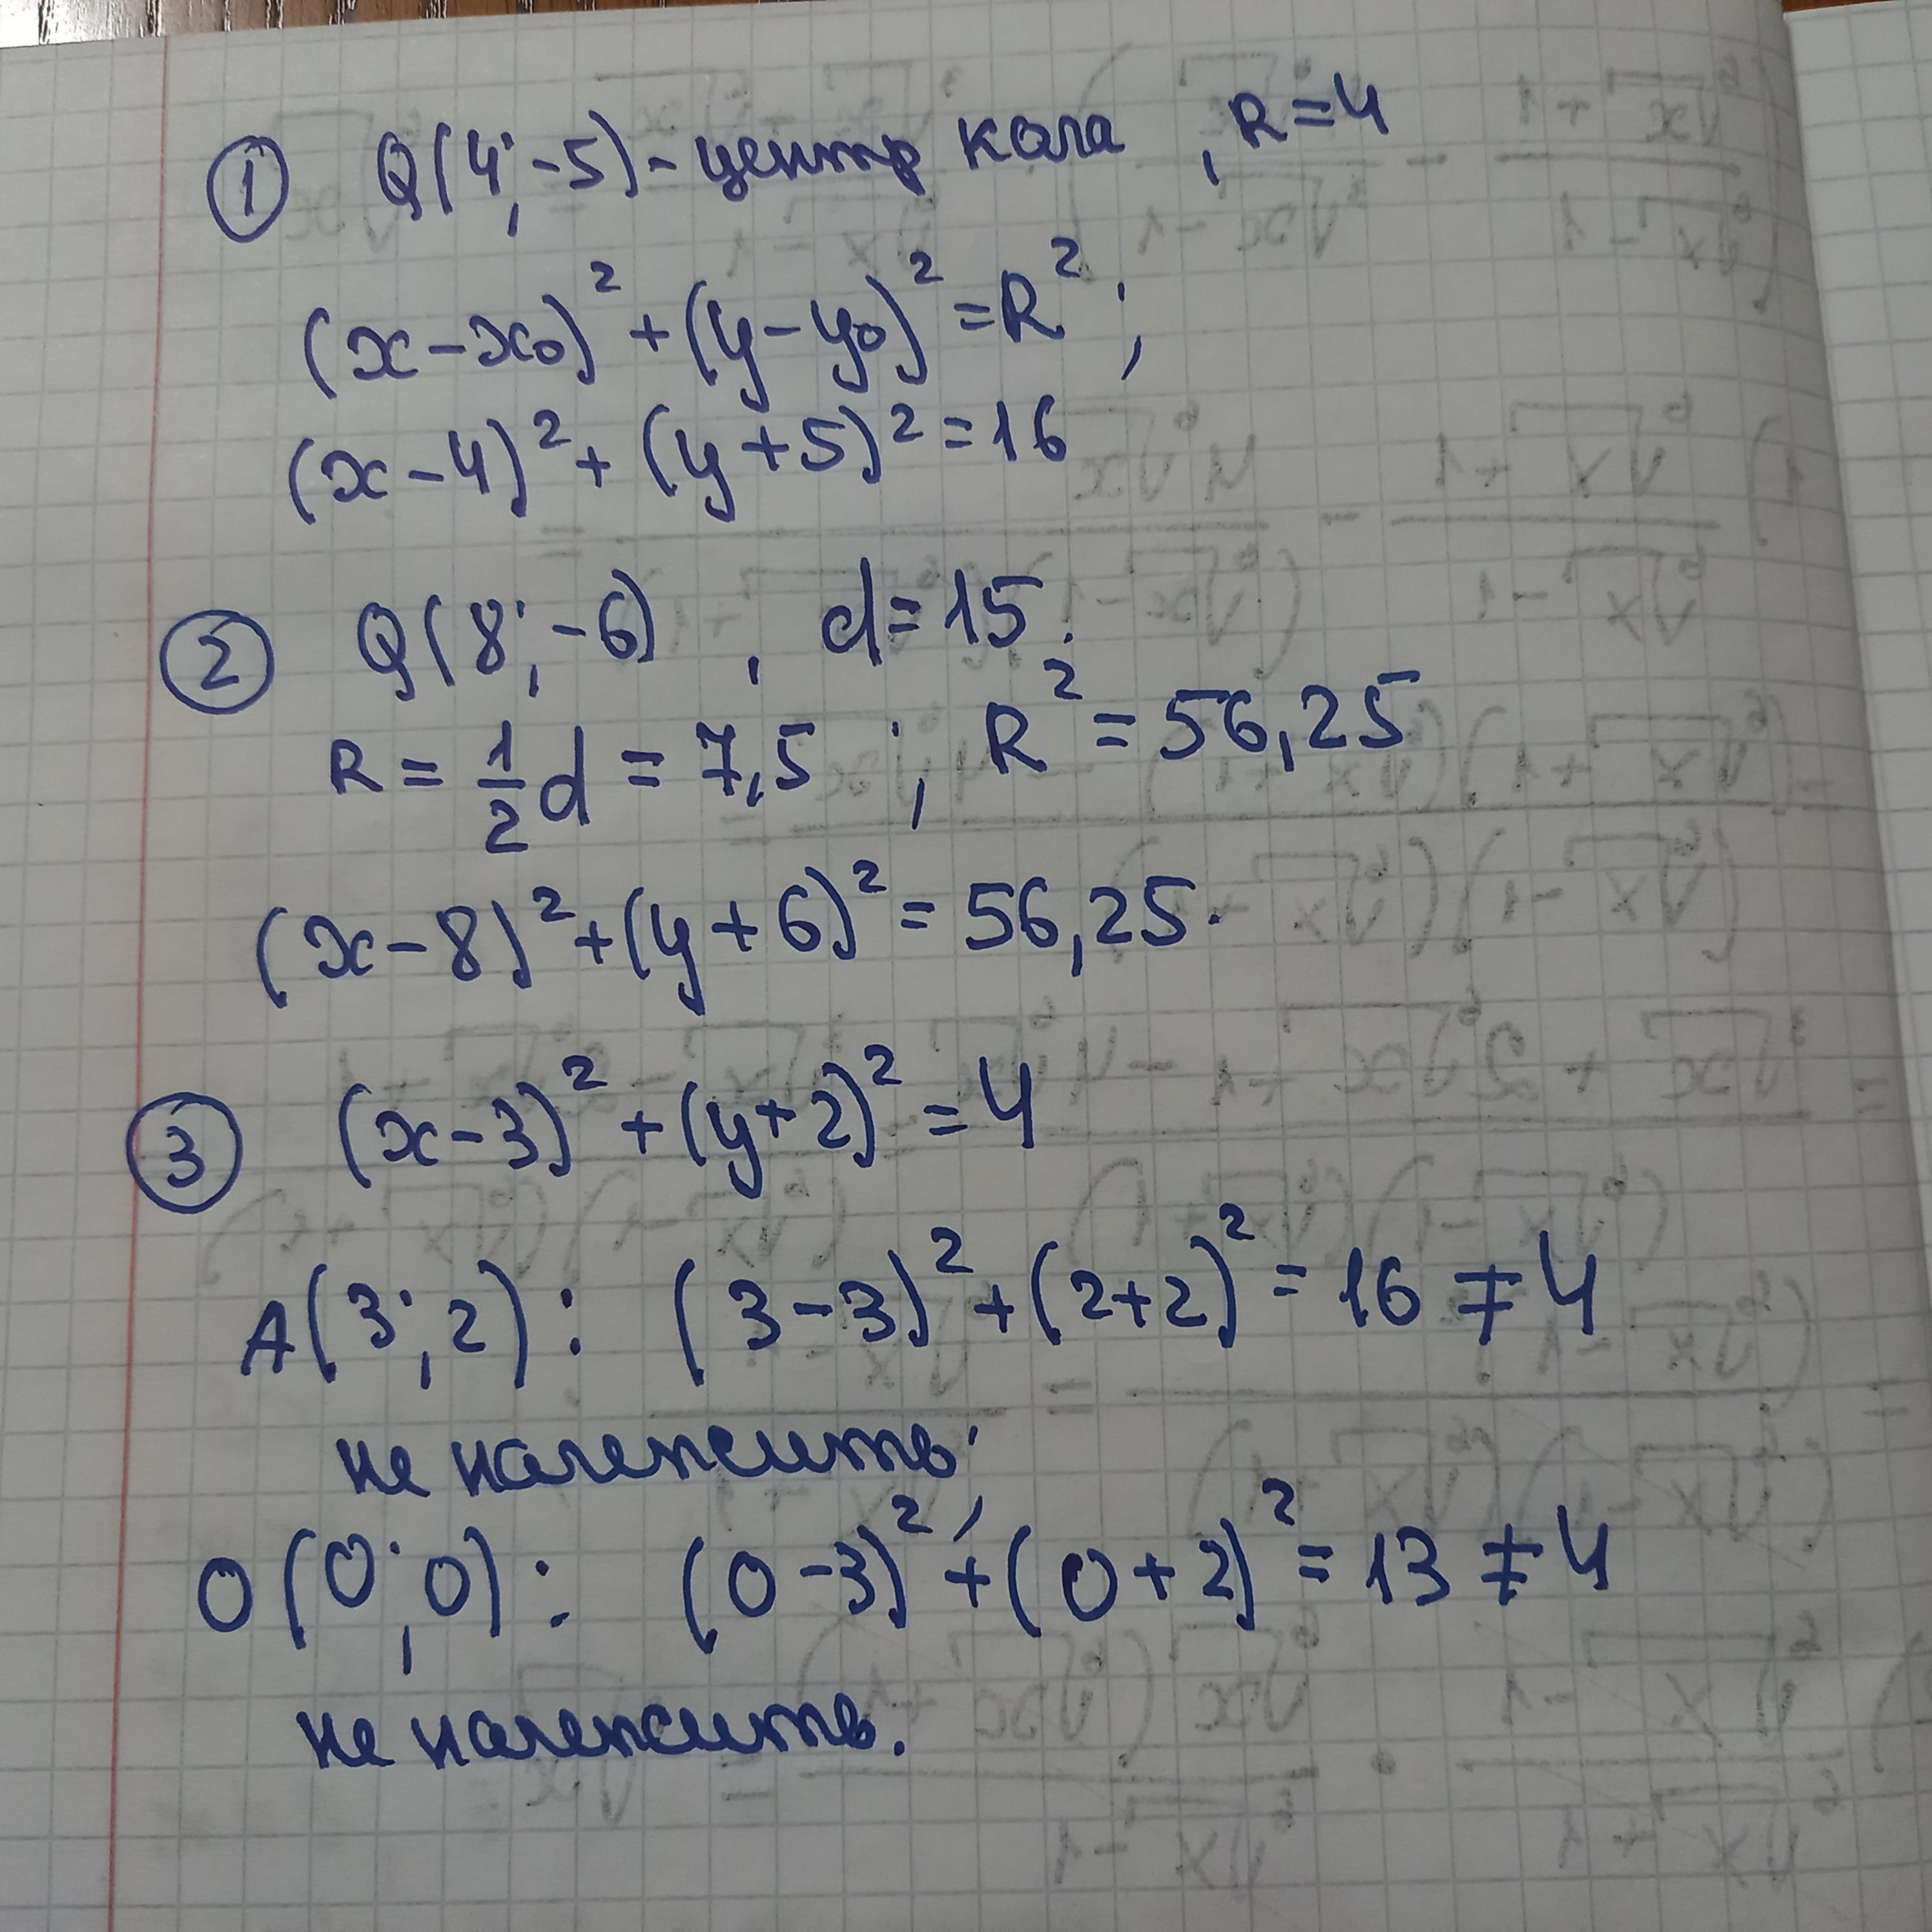 ① Q(4; -5) - центр кола , R = 4
(x - x₀)² + (y - y₀)² = R² ;
(x - 4)² + (y + 5)² = 16
② Q(8; -6) , d = 15.
R = 1/2 d = 7,5 ; R² = 56,25
(x - 8)² + (y + 6)² = 56,25.
③ (x - 3)² + (y + 2)² = 4
A(3; 2) : (3 - 3)² + (2 + 2)² = 16 ≠ 4
не належить;
O(0; 0) : (0 - 3)² + (0 + 2)² = 13 ≠ 4
не належить.